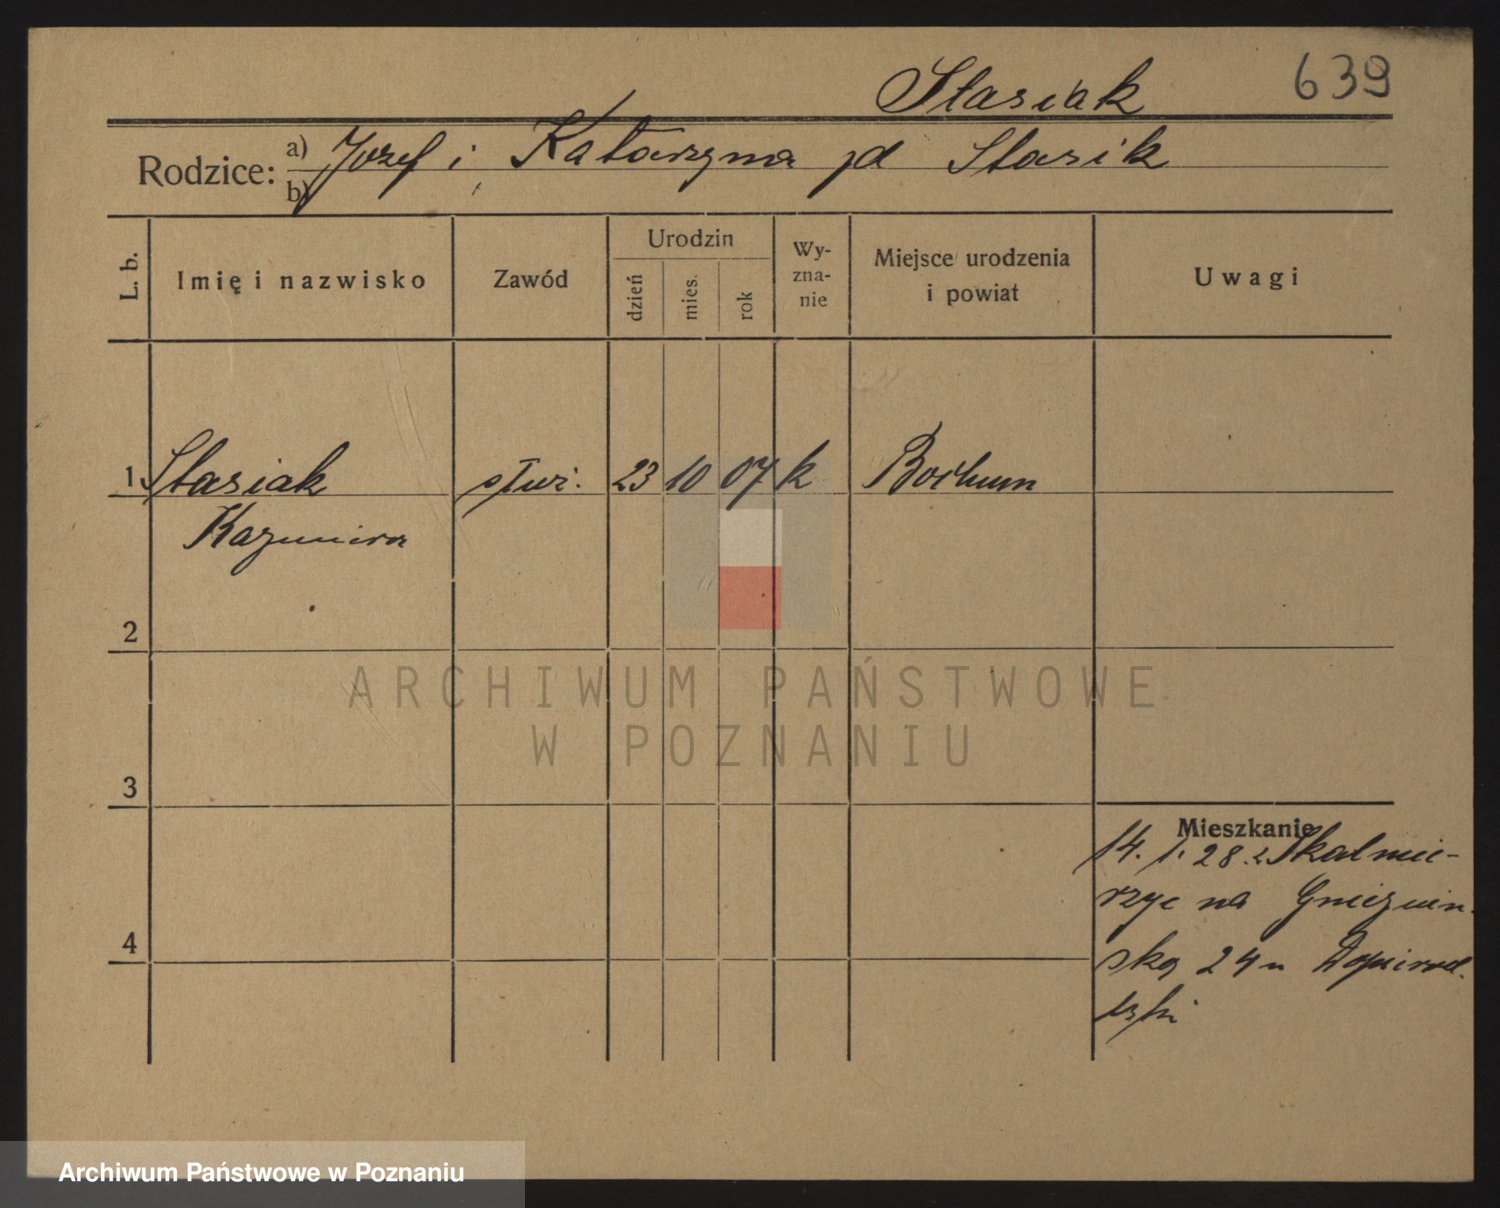 Stasiak 639
Rodzice: a) Józef i Katarzyna jd Stasik
b)
L. b. Imię i nazwisko Zawód Urodzin dzień mies. rok Wyznanie Miejsce urodzenia i powiat Uwagi
1 Stasiak służ. 23 10 07 k Bochum
Kazimiera
2
3
Mieszkanie
14. 1. 28. z Skalmie-
rzyc na Gnieźnień-
ską 24 u
4
ARCHIWUM PAŃSTWOWE
W POZNANIU
Archiwum Państwowe w Poznaniu